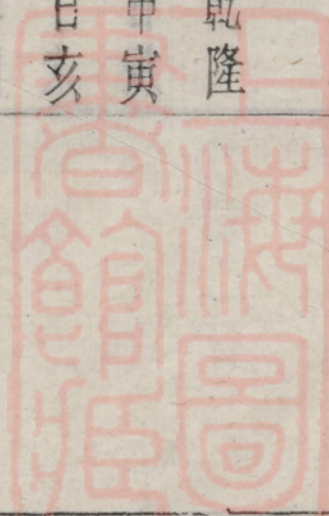 乾隆
甲寅
亥
上海圖
書館藏